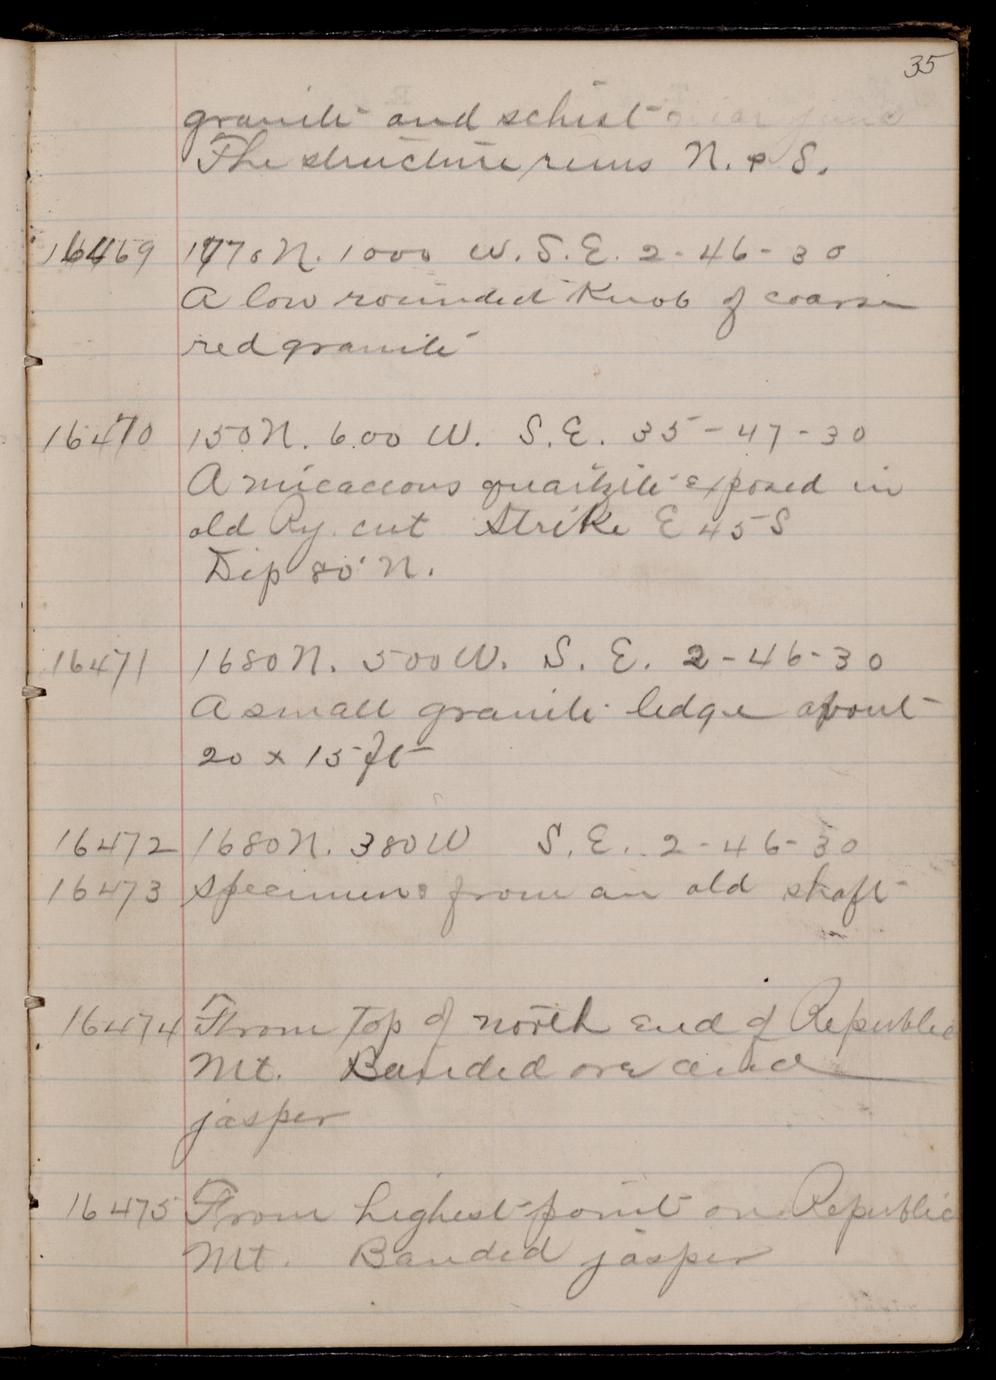 35
granite and schist near
The structure runs N. & S.
16469 1770 N. 1000 W. S.E. 2-46-30
A low rounded Knob of coarse
red granite
16470 150 N. 600 W. S.E. 35-47-30
A micaceous quartzite exposed in
old Ry. cut Strike E 45 S
Dip 80° N.
16471 1680 N. 500 W. S.E. 2-46-30
A small granite ledge about
20 x 15 ft
16472 1680 N. 380 W S.E. 2-46-30
16473 Specimens from an old shaft
16474 From top of north end of Republic
Mt. Banded ore and
jasper
16475 From highest point on Republic
Mt. Banded jasper